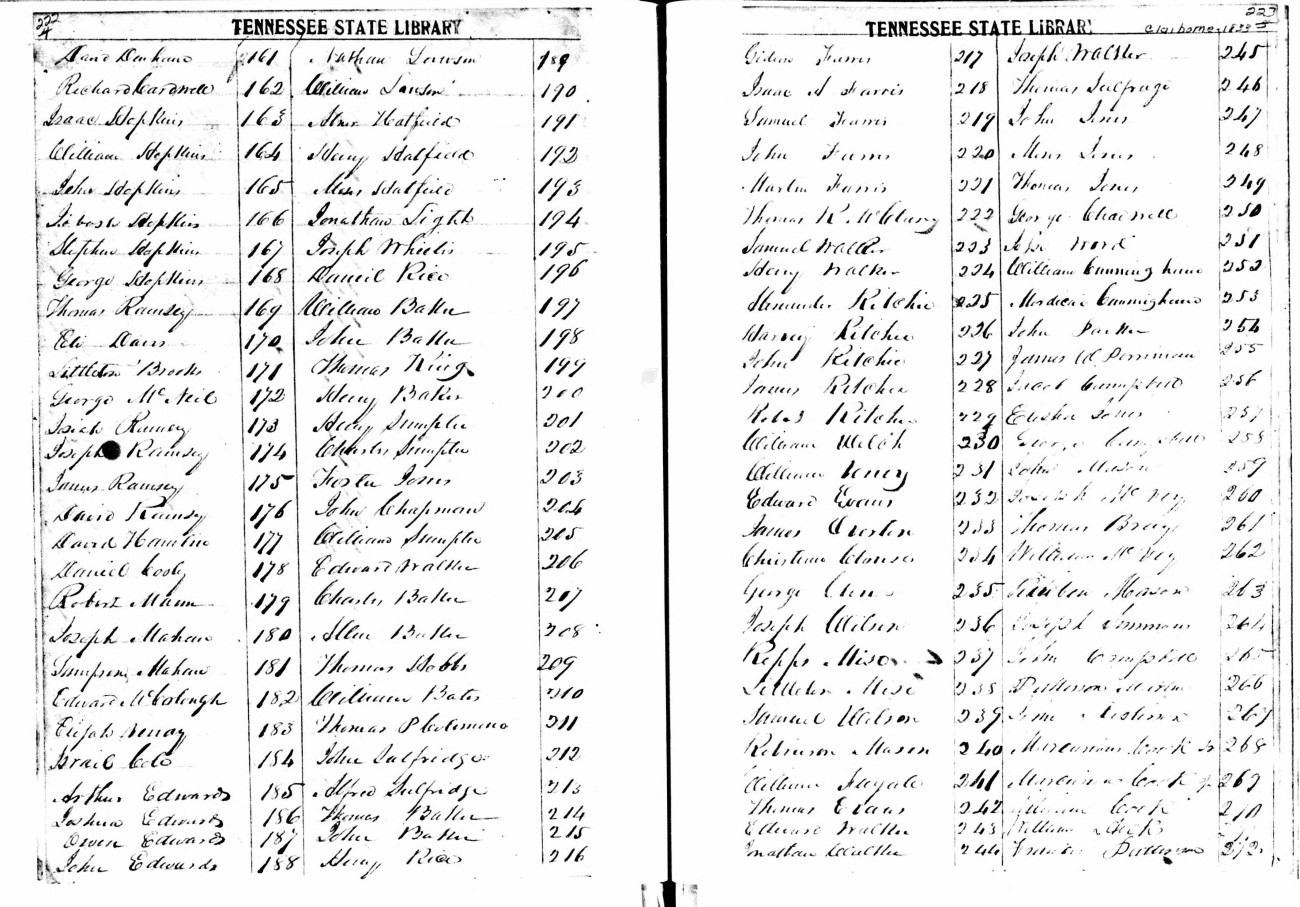 222
TENNESSEE STATE LIBRARY
David Denham 161 Nathan Lawson 189
Richard Cardwell 162 William Lawson 190
Isaac Hopkins 163 Abner Hatfield 191
William Hopkins 164 Henry Hatfield 192
John Hopkins 165 Moses Hatfield 193
Hopkins 166 Jonathan Light 194
Stephen Hopkins 167 Joseph Wheelis 195
George Hopkins 168 Daniel Rice 196
Thomas Ramsey 169 William Baker 197
Eli Davis 170 John Baker 198
Littleton Brooks 171 Thomas King 199
George McNeil 172 Henry Baker 200
Isiah Ramsey 173 Henry Sumpter 201
Joseph Ramsey 174 Charles Sumpter 202
James Ramsey 175 Foster Jones 203
David Ramsey 176 John Chapman 204
David Hamlin 177 William Sumpter 205
Daniel Cosby 178 Edward Walker 206
Robert Mann 179 Charles Baker 207
Joseph Mahan 180 Allen Baker 208
Simpson Mahan 181 Thomas Hobbs 209
Edward McColough 182 William Bates 210
Elijah 183 Thomas P 211
Israil Cole 184 John Sulfridge 212
Arthur Edwards 185 Alfred Sulfridge 213
Joshua Edwards 186 Thomas Baker 214
Owen Edwards 187 John Baker 215
John Edwards 188 Henry Rice 216
223
TENNESSEE STATE LIBRARY
Claiborne-1833
Gideon Farris 217 Joseph Walker 245
Isaac A Farris 218 Thomas Sulfrage 246
Samuel Farris 219 John Jones 247
John Farris 220 Moses Jones 248
Martin Farris 221 Thomas Jones 249
Thomas R McClury 222 George Chadwell 250
Samuel Walker 223 Word 251
Henry Walker 224 William Cunningham 252
Alexander Ritchie 225 Mordicai Cunningham 253
Harvey Ritchie 226 John Parker 254
John Ritchie 227 James W Perriman 255
James Ritchie 228 Jacob Campbell 256
Robert Ritchie 229 Elisha Jones 257
William Welch 230 George Campbell 258
William 231 John Mason 259
Edward Evans 232 Joseph McVey 260
James Overton 233 Thomas Bray 261
Christian Clouse 234 William McVey 262
George 235 Reuben Mason 263
Joseph Wilson 236 Joseph Simmons 264
Repps Mise 237 John Campbell 265
Littleton Mise 238 Patterson 266
Samuel Wilson 239 267
Robinson Mason 240 Cook Sr 268
William 241 Cook Jr 269
Thomas Evans 242 Cook 270
Edward Walker 243 William
Jonathan Walker 244 Francis Patterson 272